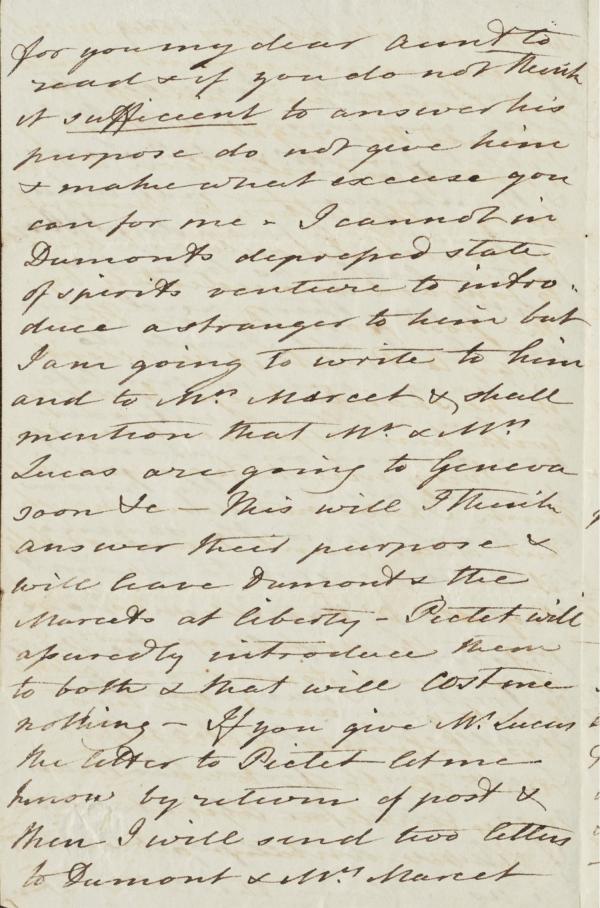 for you my dear Aunt to
read & if you do not think
it sufficient to answer his
purpose do not give him
& make what excuse you
can for me - I cannot in
Dumonts depressed state
of spirits venture to intro-
duce a stranger to him but
I am going to write to him
and to Mrs Marcet & shall
mention that Mr & Mrs
Lucas are going to Geneva
soon &c - This will I think
answer their purpose &
will leave Dumont & the
Marcets at liberty - Pictet will
assuredly introduce them
to both & that will cost me
nothing - If you give Mr Lucas
the letter to Pictet let me
know by return of post &
then I will send two letters
to Dumont & Mrs Marcet